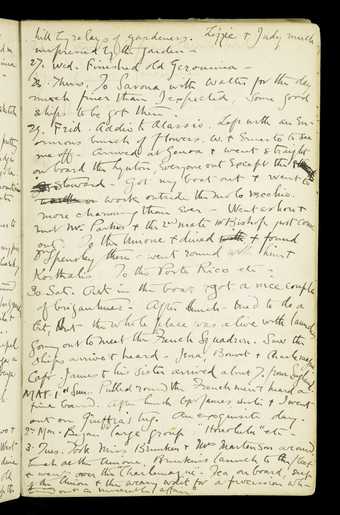 hill by relays of gardeners. Lizzie & Judy much
impressed by the garden –
27. Wed. Finished old Geronima –
28. Thurs. To Savona with Walter for the day
much finer than I expected. Some good
ships to be got there –
29. Frid. Addio to Alassio. Left with an en-
ormous bunch of flowers. W. & to see
me off – Arrived at Genoa & went straight
on board the Everyone out except the
Steward – Got my boat out & went to
work outside the molo Vecchio.
more charming than ever – Went ashore &
met Mr. Parkes & the 2nd mate Mr Bishop just come
out. To the Unione & dined & found
Spensley there – went round with
To the Porto Rico etc –
30 Sat. Out in the boat & got a nice couple
of brigantines – After lunch – tried to do a
bit, but the whole place was alive with launches
going out to meet the French Squadron. Saw the
Ships arrive & heard – Jena, Bouvet & Charlemagne
Capt. James & his sister arrived about 7. from England
MAY. 1st Sun. Pulled round the French men & heard a
fine band. After lunch Capt James sister & I went
out on tug. An exquisite day.
2nd Mon. Began large proof "Honolulu" etc
3. Tues. Took Miss Brunker & Mrs Martenson around
lunch at the Unione. Brunker's launch to the fleet
& went over the "Charlemagne". Tea on board,
& the Union & the weary wait for a procession wh.
out a miserable affair